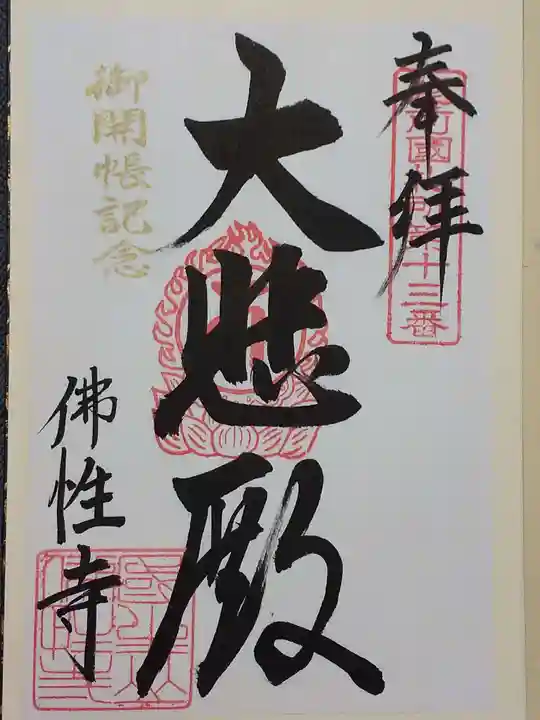 奉拝
國
十三番
大悲殿
御開帳記念
佛性寺